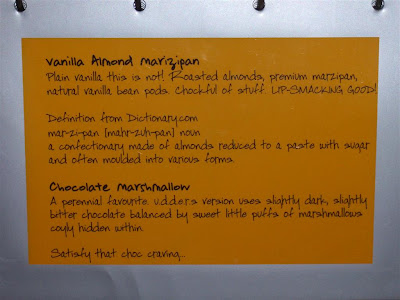 Vanilla Almond Marizipan
Plain vanilla this is not! Roasted almonds, premium marzipan,
natural vanilla bean pods. Chockful of stuff. LIP-SMACKING GOOD!
Definition from Dictionary.com
mar-zi-pan [mahr-zuh-pan] noun
a confectionary made of almonds reduced to a paste with sugar
and often moulded into various forms.
Chocolate Marshmallow
A perennial favourite. u.d.d.e.r.s version uses slightly dark, slightly
bitter chocolate balanced by sweet little puffs of marshmallows
coyly hidden within.
Satisfy that choc craving...